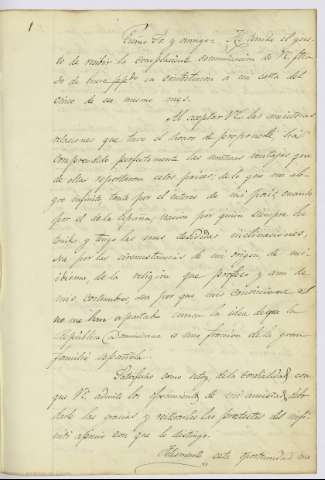 1
Excmo Sor y amigo: He tenido el gus-
to de recibir la complaciente comunicacion de VE fha
de doce ppdo en contestacion á mi carta del
cinco de ese mismo mes.
Al aceptar VE las amistosas
relaciones que tuve el honor de proponerle, ha
comprendido perfectamente las mutuas ventajas que
de ellas reportaran estos paises; de lo que me ale-
gro infinito, tanto por el interes de mi pais, cuanto
por el de la España, nacion por quien siempre he
tenido y tengo las mas decididas inclinaciones,
sea por las circunstancias de mi origen, de mi
idioma, de la religion que profeso y aun de
mis costumbres, sea por que mis convicciones
no me han apartado nunca la idea de que la
República Dominicana es una fraccion de la gran
familia española.
Satisfecho como estoy de la cordialidad con
que VE admite los ofrecimientos de mi amistad, debo
darle las gracias y reiterarle las protestas del
aprecio con que le distingo.
Aprovecho esta oportunidad